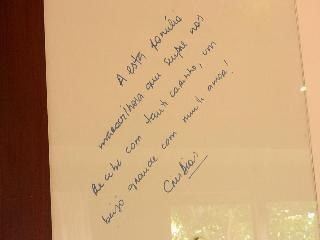 A esta família
maravilhosa que sempre nos
Recebe com tanto carinho, um
beijo grande com muito amor!